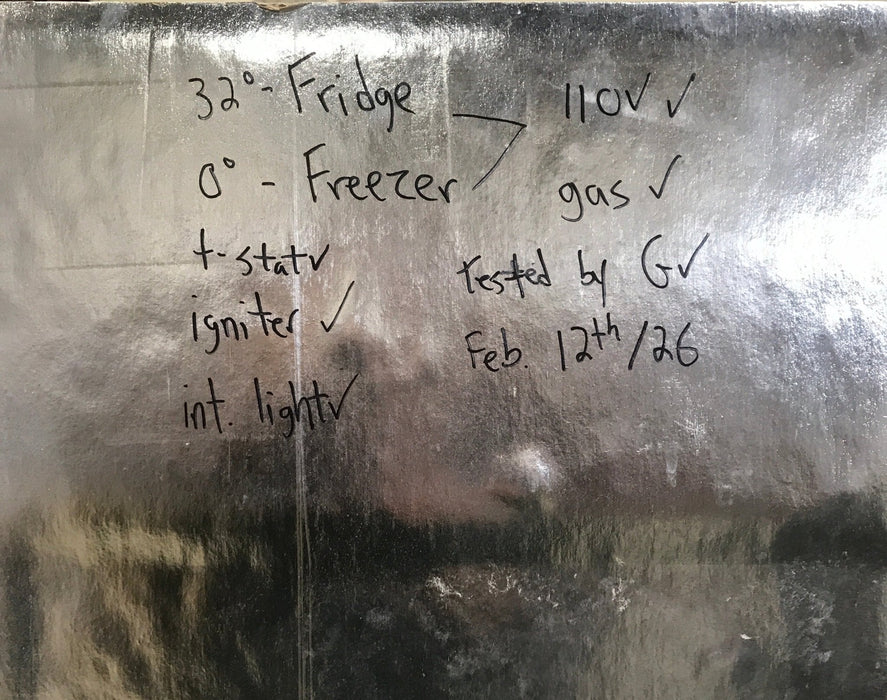 32° - Fridge
0° - Freezer
t-stat ✓
igniter ✓
int. light ✓
110V ✓
gas ✓
tested by G ✓
Feb. 12th/26